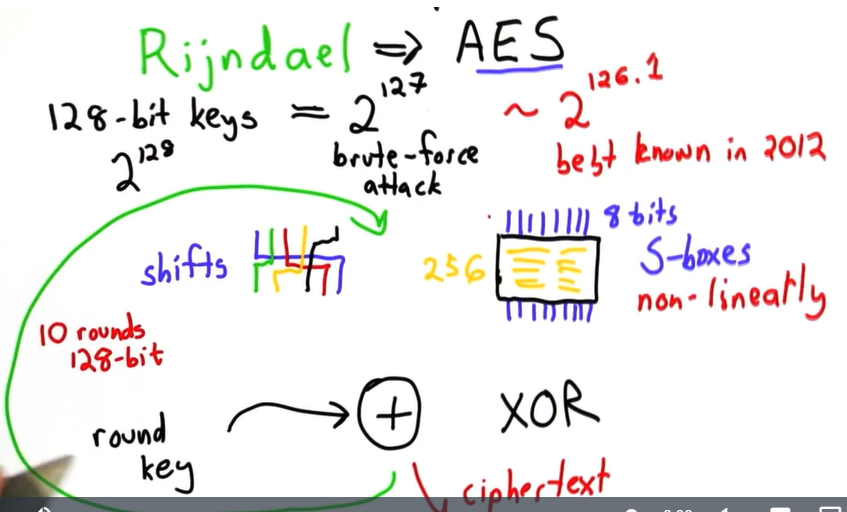 Rijndael ⇒ AES
128-bit keys = 2^127 ~ 2^126.1
2^128
brute-force
attack
best known in 2012
shifts
256
8 bits
S-boxes
non-linearly
10 rounds
128-bit
round
key
+ XOR
ciphertext